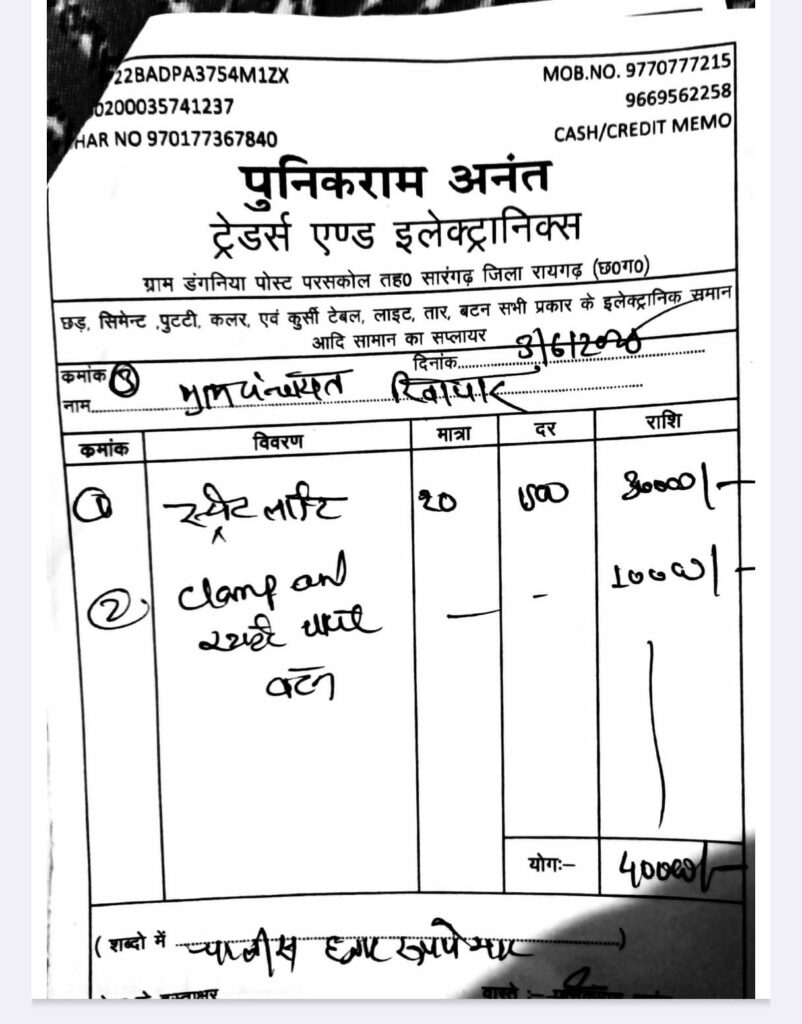 22BADPA3754M1ZX
MOB.NO. 9770777215
0200035741237
9669562258
HAR NO 970177367840
CASH/CREDIT MEMO
पुनिकराम अनंत
ट्रेडर्स एण्ड इलेक्ट्रानिक्स
ग्राम डंगनिया पोस्ट परसकोल तह0 सारंगढ़ जिला रायगढ़ (छ0ग0)
छड़, सिमेन्ट ,पुटटी, कलर, एवं कुर्सी टेबल, लाइट, तार, बटन सभी प्रकार के इलेक्ट्रानिक समान
आदि सामान का सप्लायर
कमांक दिनांक 3/6/2020
नाम
कमांक विवरण मात्रा दर राशि
1 लाईट 20 1500 30000/-
2 clamp and 10000/-
बटन
योग:- 40000/-
( शब्दो में चालीस हजार रूपये मात्र )